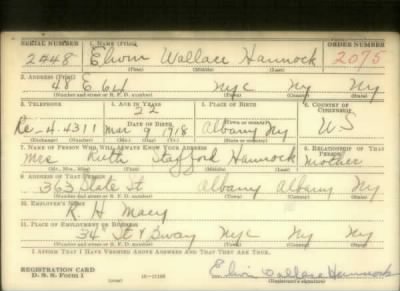 SERIAL NUMBER 1. NAME (Print) ORDER NUMBER
2448 Elwin Wallace Hannock 2075
(First) (Middle) (Last)
2. ADDRESS (Print)
48 E 64 NYC NY NY
(Number and street or R. F. D. number) (Town) (County) (State)
3. TELEPHONE 4. AGE IN YEARS 5. PLACE OF BIRTH 6. COUNTRY OF CITIZENSHIP
22
Re-4-4311 DATE OF BIRTH Albany NY US
Mar 9 1918
(Exchange) (Number) (Mo.) (Day) (Yr.) (State or country)
7. NAME OF PERSON WHO WILL ALWAYS KNOW YOUR ADDRESS 8. RELATIONSHIP OF THAT PERSON
Mrs Ruth Stafford Hannock Mother
(Mr., Mrs., Miss) (First) (Middle) (Last)
9. ADDRESS OF THAT PERSON
363 State St Albany Albany NY
(Number and street or R. F. D. number) (Town) (County) (State)
10. EMPLOYER'S NAME
R. H Macy
11. PLACE OF EMPLOYMENT OR BUSINESS
34 St & Bway NYC NY NY
(Number and street or R. F. D. number) (Town) (County) (State)
I AFFIRM THAT I HAVE VERIFIED ABOVE ANSWERS AND THAT THEY ARE TRUE.
REGISTRATION CARD Elwin Wallace Hannock
D. S. S. Form 1 (over) (Registrant's signature)